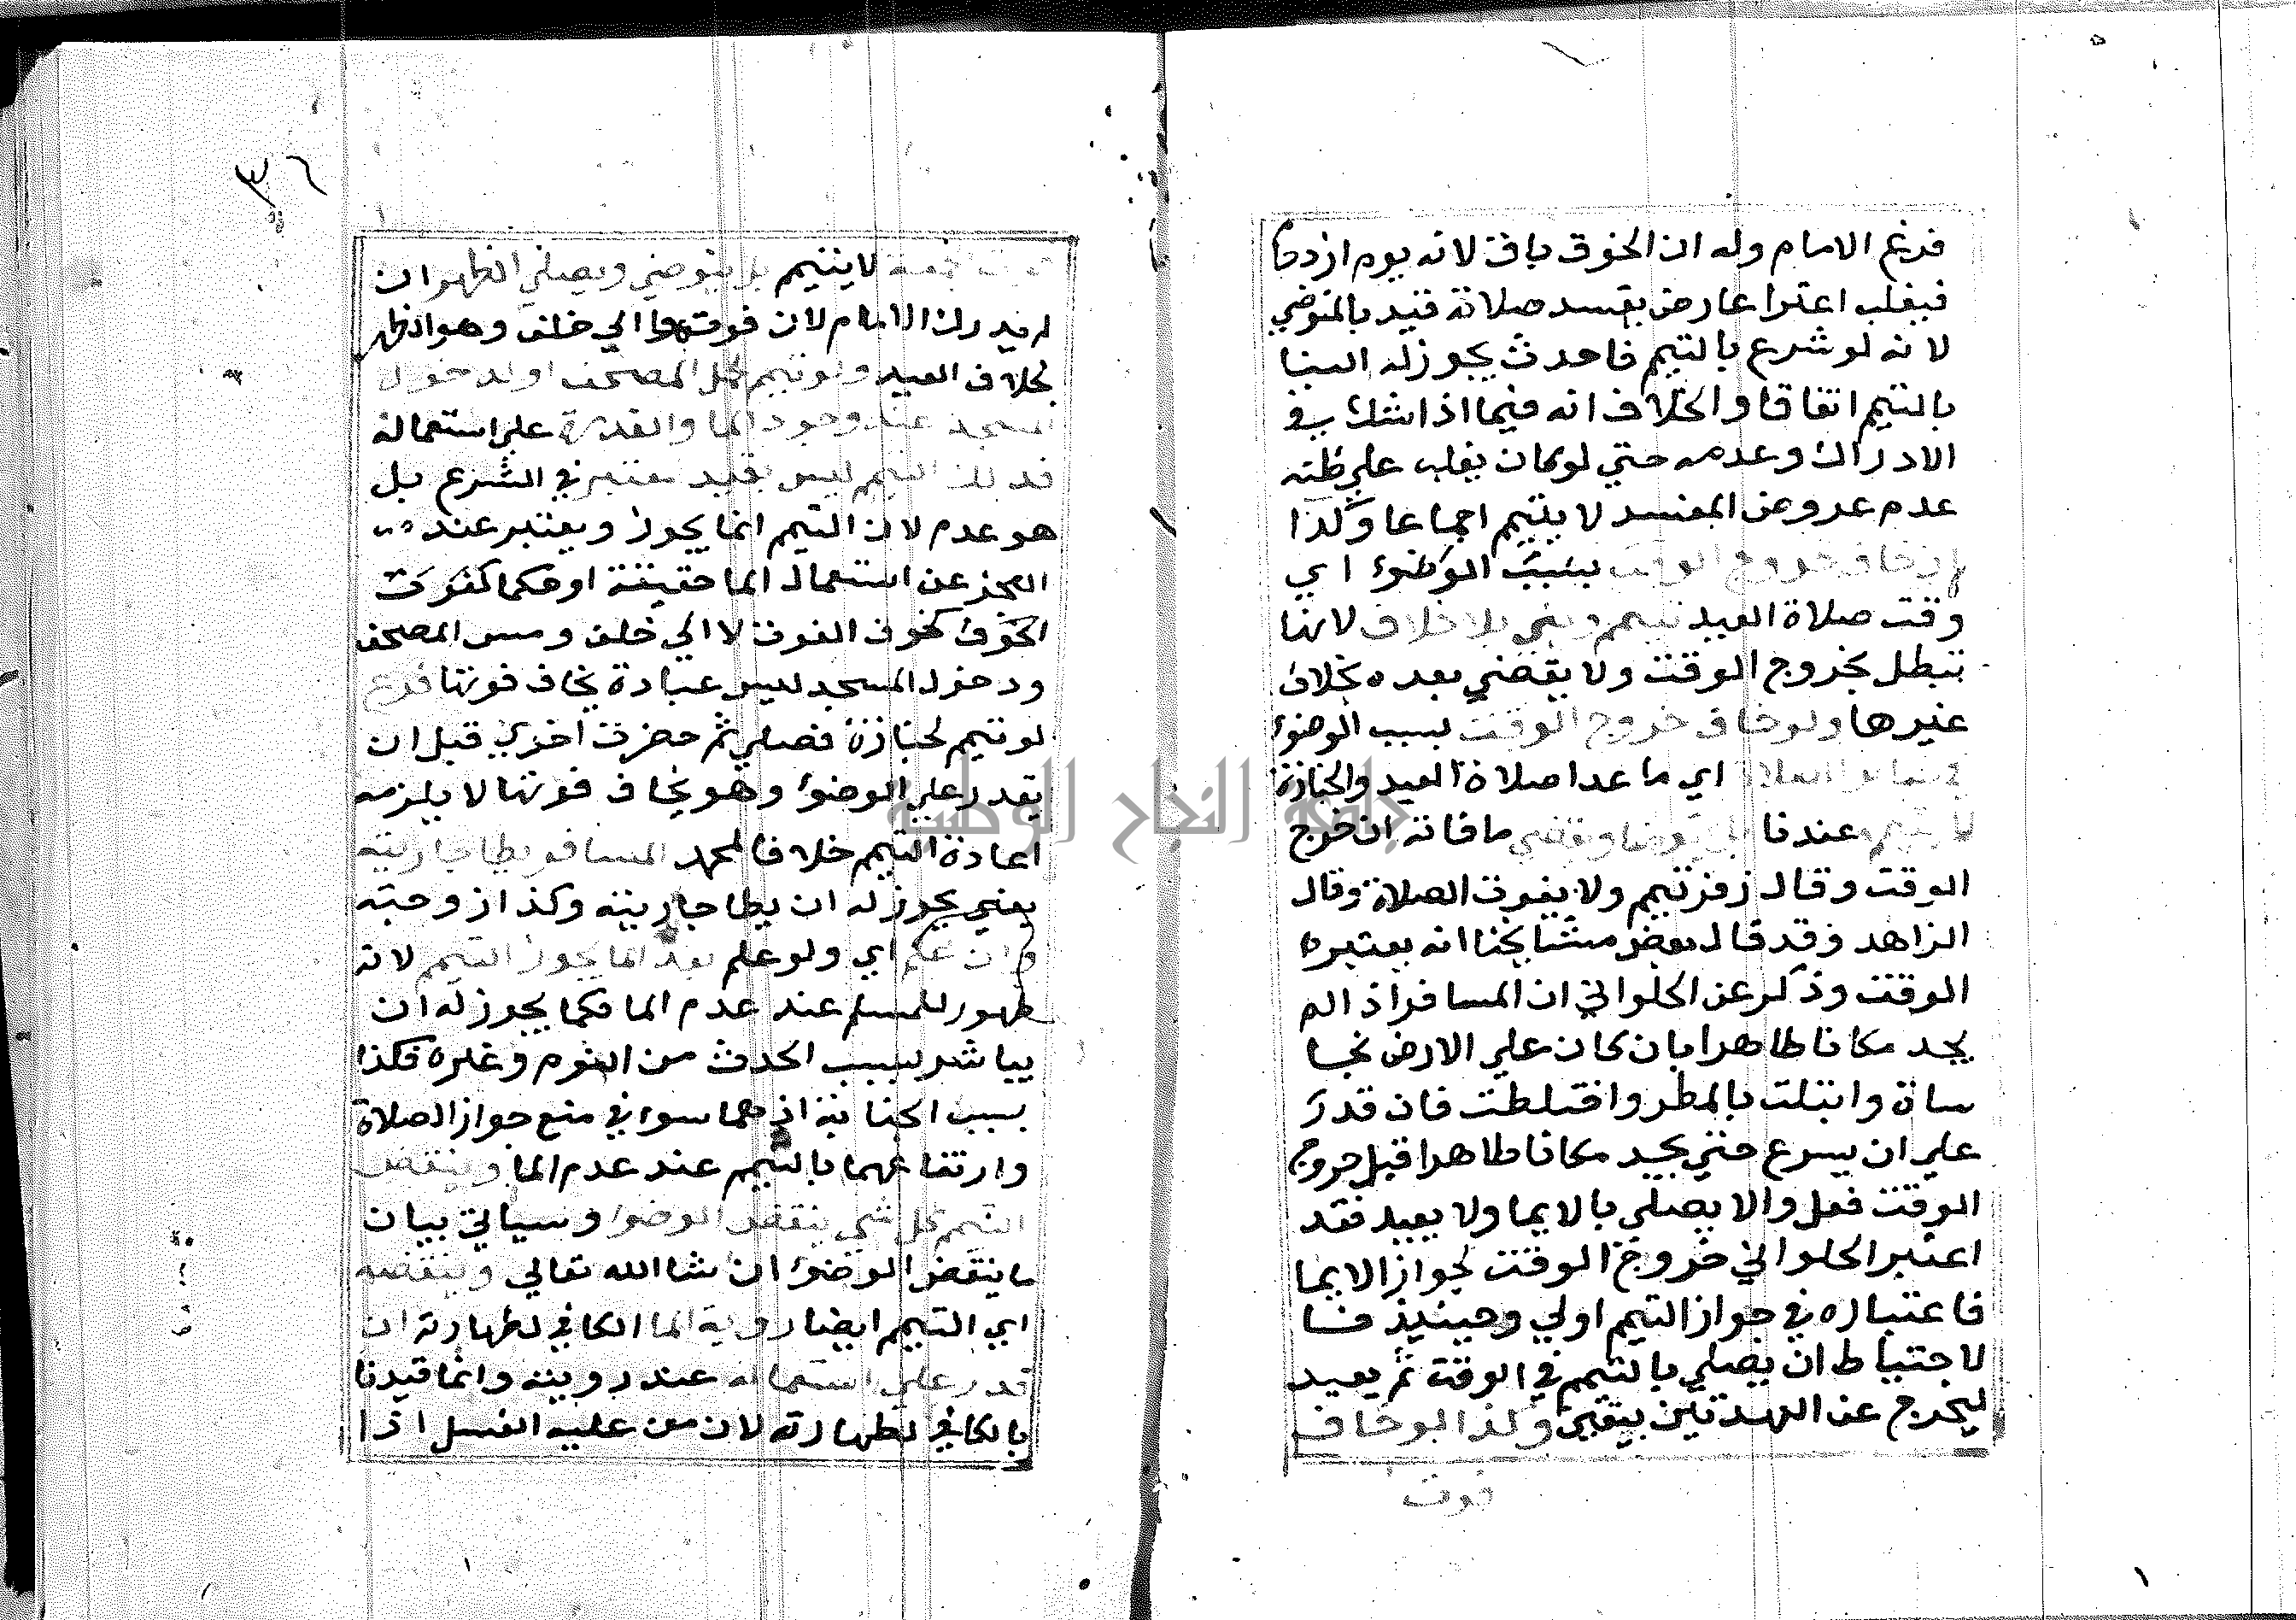 فرغ الامام وله ان الخوف باق لانه يوم ازدحا
فيغلب اعترا عارض يفسد صلاته قيد بالمتوضي
لانه لو شرع بالتيمم فاحدث يجوز له البنا
بالتيمم اتفاقا والخلاف انه فيما اذا شك في
الادراك وعدمه حتي لو كان يغلب علي ظنه
عدم عروض المفسد لا يتيمم اجماعا وكذا
ان خاف خروج الوقت بسبب الوضوء اي
وقت صلاة العيد تيمم وبني بلا خلاف لانها
تبطل بخروج الوقت ولا يقضي بعده بخلاف
غيرها ولو خاف خروج الوقت بسبب الوضوء
اي ما عدا صلاة العيد والجنازة
لا يتيمم عندنا بل يتوضا ويقضي ما فاته ان خرج
الوقت وقال زفر تيمم ولا يفوت الصلاة وقال
الزاهد وقد قال بعض مشايخنا انه يعتبره
الوقت وذكر عن الحلواني ان المسافر اذ الم
يجد مكانا طاهرا بان كان علي الارض نجا
ساة وابتلت بالمطر واختلطت فان قدر
علي ان يسرع حتي يجد مكانا طاهرا قبل خروج
الوقت فعل والا يصلي بالايما ولا يعيد فقد
اعتبر الحلواني خروج الوقت لجواز الايما
فاعتباره في جواز التيمم اولي وحينيذ فا
لاحتياط ان يصلي بالتيمم في الوقت ثم يعيد
ليخرج عن العهدتين بيقين وكذا لو خاف
فوت
٣٦
فوت الجمعة لا يتيمم بل يتوضي ويصلي الظهر ان
لم يدرك الامام لان فوتها الي خلف وهو الظهر
بخلاف العيد ولو تيمم لمس المصحف او لدخول
المسجد عند وجود الما والقدرة علي استعماله
فذلك التيمم ليس بقيد معتبر في الشرع بل
هو عدم لان التيمم انما يجوز ويعتبر عند
العجز عن استعمال الما حقيقة او حكما كفوت
الخوف كخوف الفوت لا الي خلف ومس المصحف
ودخول المسجد ليس عبادة يخاف فوتها فرع
لو تيمم لجنازة فصلي ثم حضرت اخري قبل ان
يقدر علي الوضوء وهو يخاف فوتها لا يلزمه
اعادة التيمم خلافا لمحمد المسافر يطا جاريته
يعني يجوز له ان يطا جاريته وكذا زوجته
وان علم اي ولو علم بعد الما يجوز التيمم لانه
طهور للمسلم عند عدم الما فكما يجوز له ان
يباشر بسبب الحدث من النوم وغيره فكذا
بسبب الجنابة اذ هما سوا في منع جواز الصلاة
وارتفاعهما بالتيمم عند عدم الما وينقض
التيمم كل شي ينقض الوضوء وسياتي بيان
ما ينقض الوضوء ان شا الله تعالي وينقضه
اي التيمم ايضا روية الما الكافي لطهارته ان
قدر علي استعماله عند رويته وانما قيدنا
بالكافي لطهارته لان من عليه الغسل اذا
جامعة النجاح الوطنية